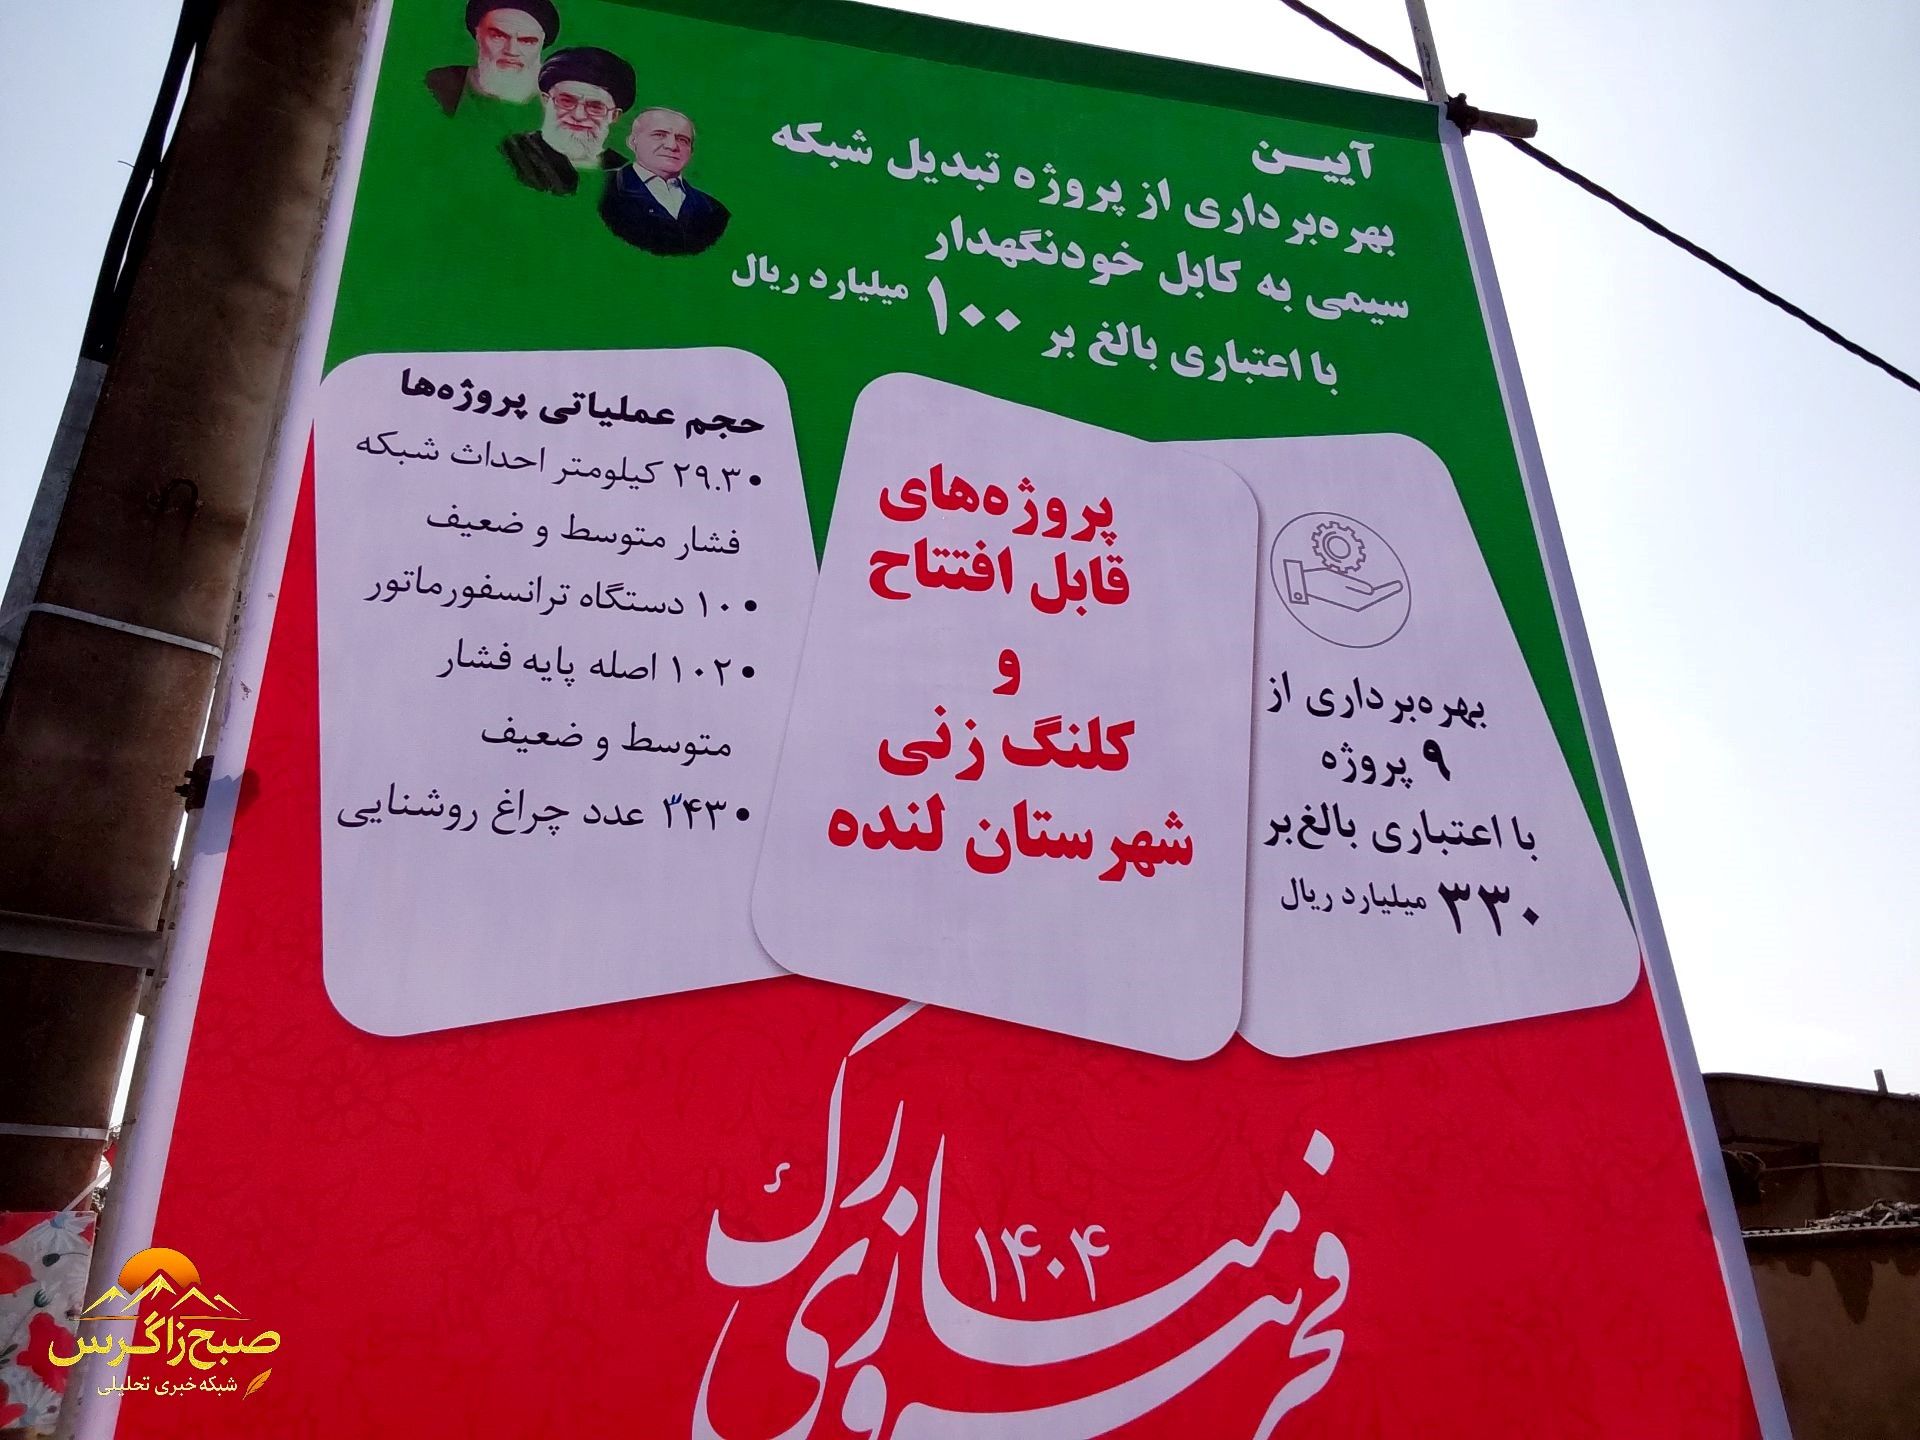 آیین
بهره‌برداری از پروژه تبدیل شبکه
سیمی به کابل خودنگهدار
با اعتباری بالغ بر ۱۰۰ میلیارد ریال
بهره‌برداری از
۹ پروژه
با اعتباری بالغ‌بر
۳۳۰ میلیارد ریال
پروژه‌های
قابل افتتاح
و
کلنگ زنی
شهرستان لنده
حجم عملیاتی پروژه‌ها
• ۲۹.۳ کیلومتر احداث شبکه
فشار متوسط و ضعیف
• ۱۰ دستگاه ترانسفورماتور
• ۱۰۲ اصله پایه فشار
متوسط و ضعیف
• ۳۴۳ عدد چراغ روشنایی
۱۴۰۴
صبح زاگرس
شبکه خبری تحلیلی